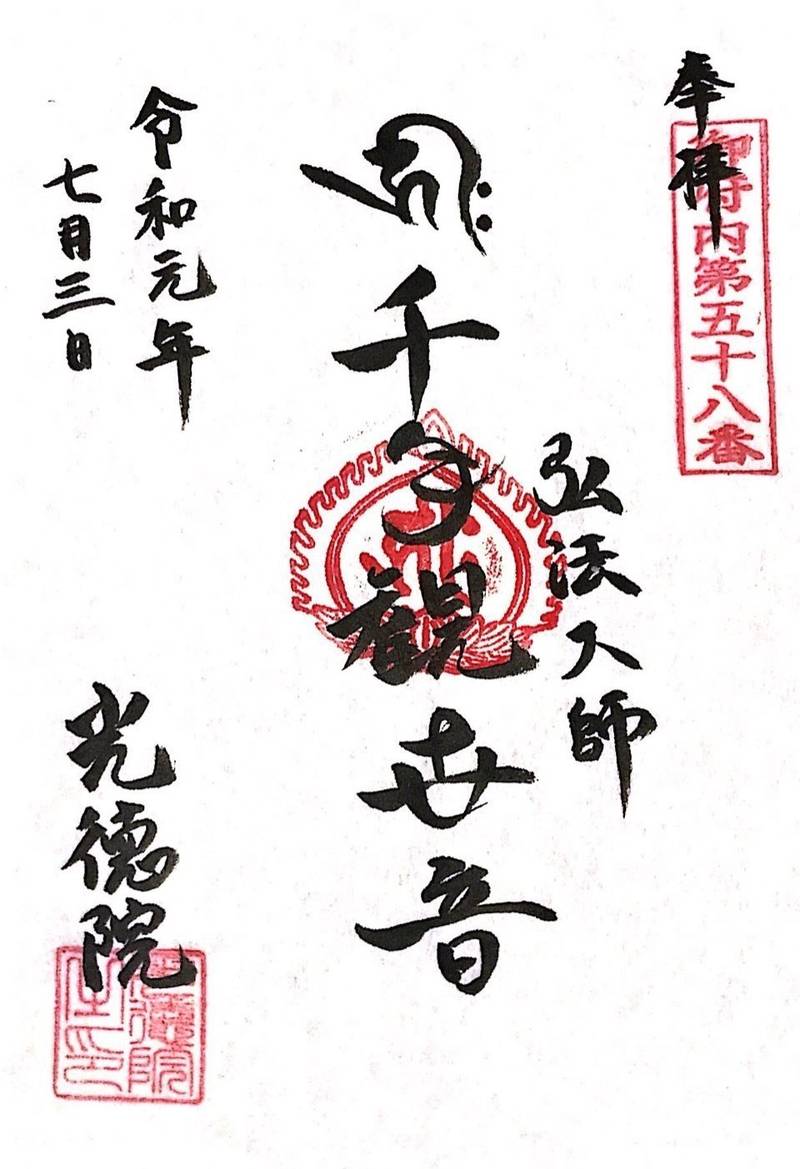 奉拝
御府内第五十八番
弘法大師
千手観世音
令和元年
七月三日
光徳院